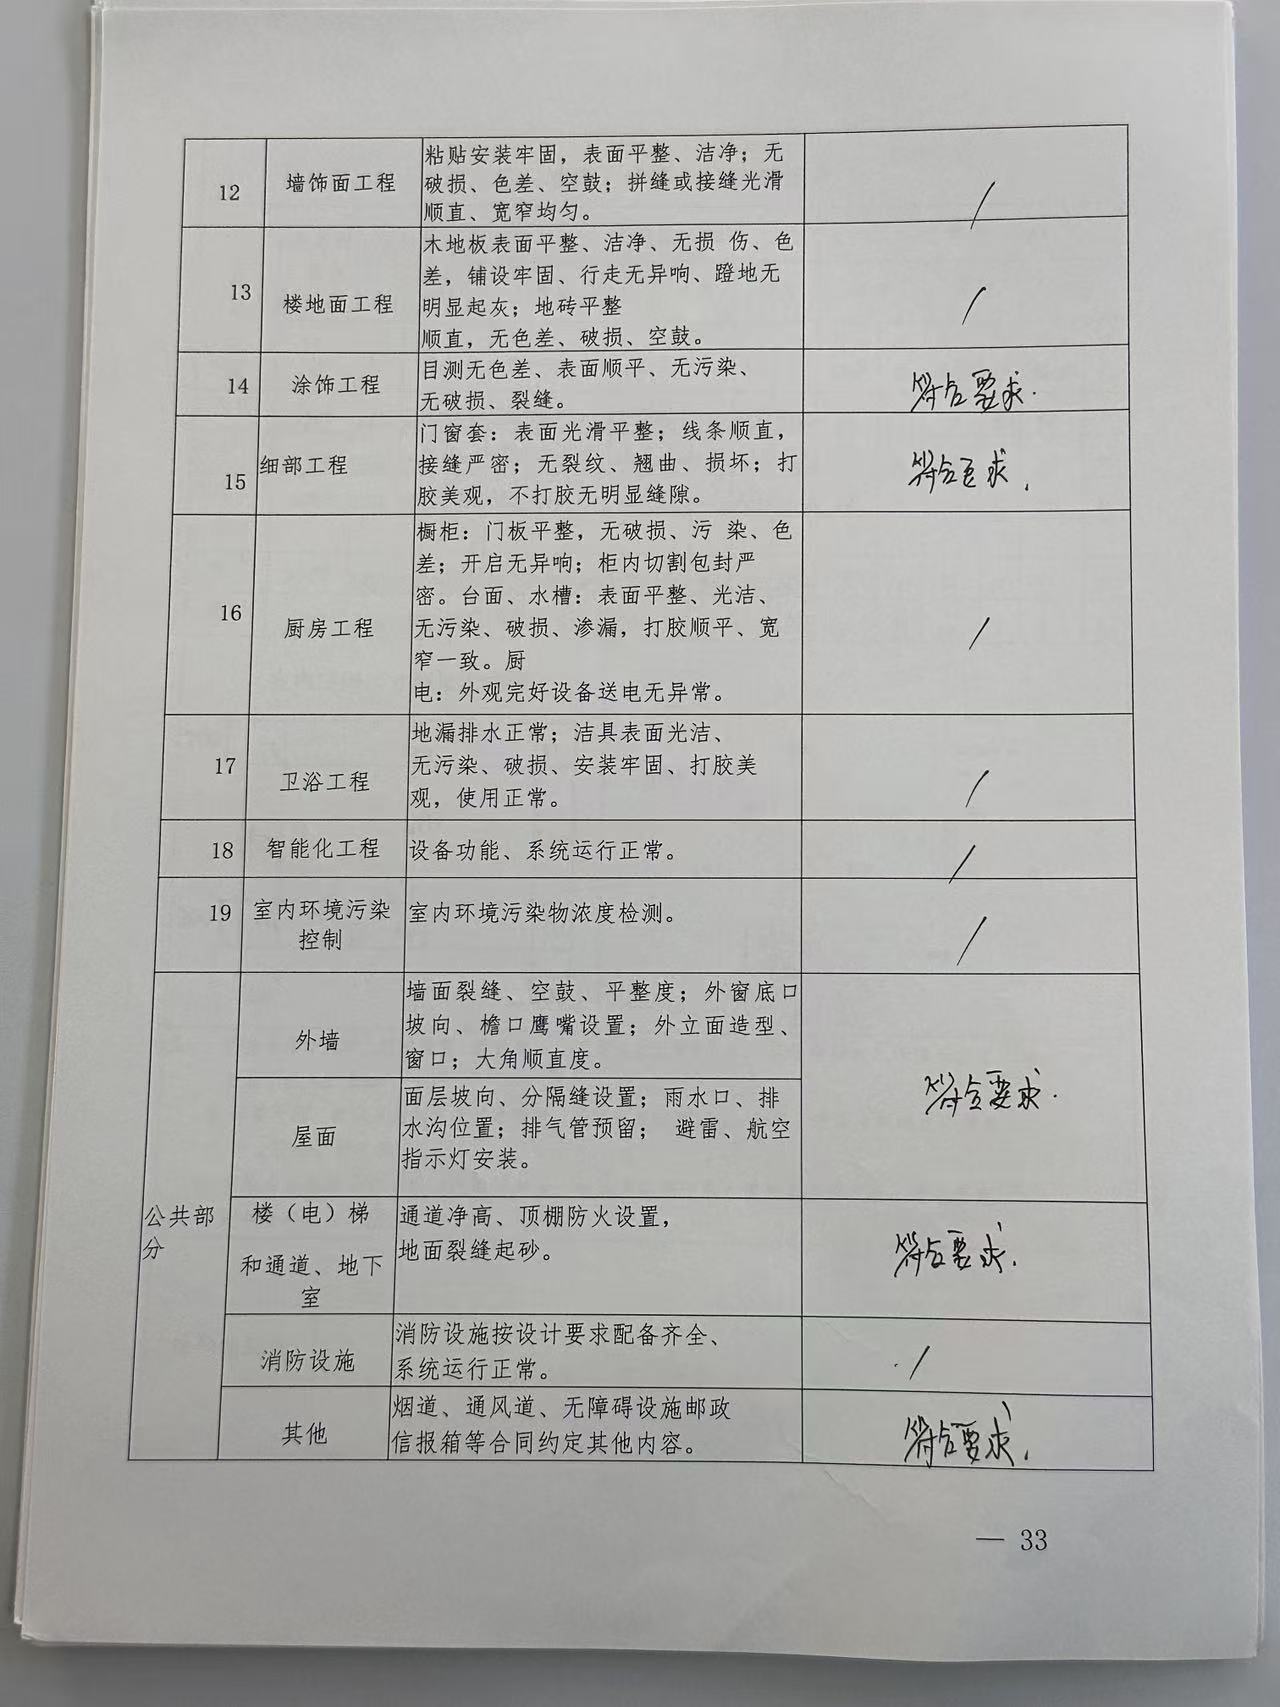 12
墙饰面工程
粘贴安装牢固，表面平整、洁净；无
破损、色差、空鼓；拼缝或接缝光滑
顺直、宽窄均匀。
/
13
楼地面工程
木地板表面平整、洁净、无损 伤、色
差，铺设牢固、行走无异响、蹬地无
明显起灰；地砖平整
顺直，无色差、破损、空鼓。
/
14
涂饰工程
目测无色差、表面顺平、无污染、
无破损、裂缝。
符合要求.
15
细部工程
门窗套：表面光滑平整；线条顺直，
接缝严密；无裂纹、翘曲、损坏；打
胶美观，不打胶无明显缝隙。
符合要求.
16
厨房工程
橱柜：门板平整，无破损、污 染、色
差；开启无异响；柜内切割包封严
密。台面、水槽：表面平整、光洁、
无污染、破损、渗漏，打胶顺平、宽
窄一致。厨
电：外观完好设备送电无异常。
/
17
卫浴工程
地漏排水正常；洁具表面光洁、
无污染、破损、安装牢固、打胶美
观，使用正常。
/
18
智能化工程
设备功能、系统运行正常。
/
19
室内环境污染
控制
室内环境污染物浓度检测。
/
公共部
分
外墙
墙面裂缝、空鼓、平整度；外窗底口
坡向、檐口鹰嘴设置；外立面造型、
窗口；大角顺直度。
符合要求.
屋面
面层坡向、分隔缝设置；雨水口、排
水沟位置；排气管预留； 避雷、航空
指示灯安装。
楼（电）梯
和通道、地下
室
通道净高、顶棚防火设置，
地面裂缝起砂。
符合要求.
消防设施
消防设施按设计要求配备齐全、
系统运行正常。
/
其他
烟道、通风道、无障碍设施邮政
信报箱等合同约定其他内容。
符合要求.
— 33